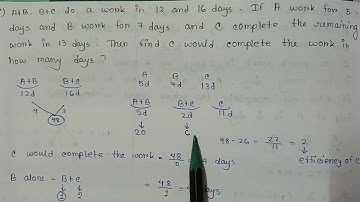 A+B. B+C do a work in 12 and 16 days. If A work for 5
days and B work for 7 days and C complete the remaining
work in 13 days. Then find C would complete the work in
how many days?
A B C
5d 7d 13d
A+B B+C
12d 16d
4 3
48
A+B B+C C
5d 2d 11d
20 6
48-26 = 22/11 = 2
efficiency of C
C would complete the work = 48/2 = days
B alone - B+C
1 2
= 48/1 = days